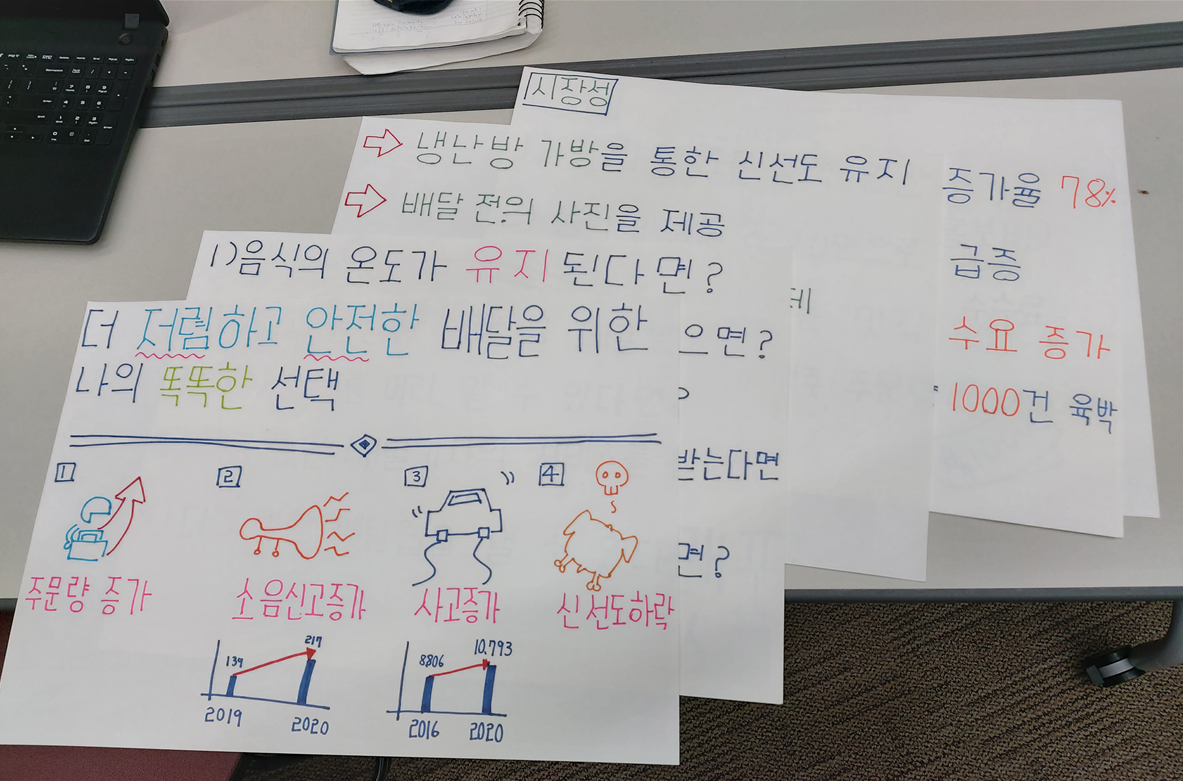 시장성
증가율 78%
급증
수요 증가
1000건 육박
⇨ 냉난방 가방을 통한 신선도 유지
⇨ 배달 전의 사진을 제공
1)음식의 온도가 유지 된다면?
으면?
받는다면
면?
더 저렴하고 안전한 배달을 위한
나의 똑똑한 선택
1 2 3 4
주문량 증가 소음신고증가 사고증가 신선도하락
139 217
2019 2020
8,806 10,793
2016 2020